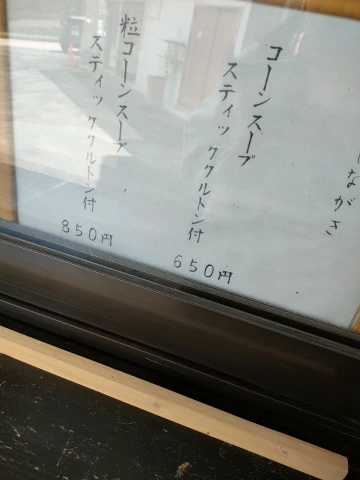 しながき
コーンスープ
スティッククルトン付
650円
粒コーンスープ
スティッククルトン付
850円